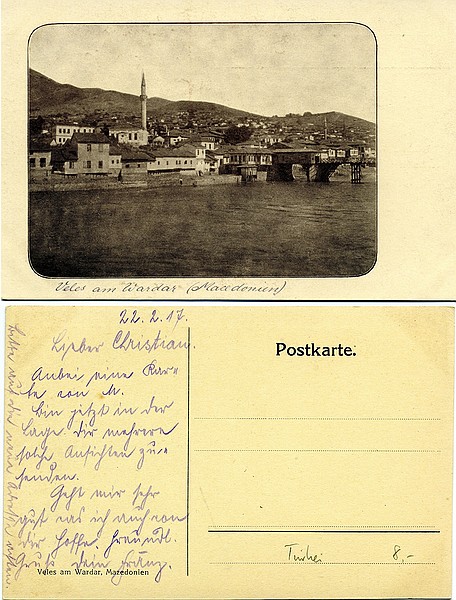 Veles am Wardar (Macedonien)
22.2.17.
Lieber Christian.
Anbei eine Kar=
te von M.
Bin jetzt in der
Lage, dir mehrere
solche Ansichten zu=
senden.
Geht mir sehr
gut was ich auch von
dir hoffe. Freundl.
Gruss dein Franz.
Veles am Wardar, Mazedonien
Postkarte.
Türkei 8,-